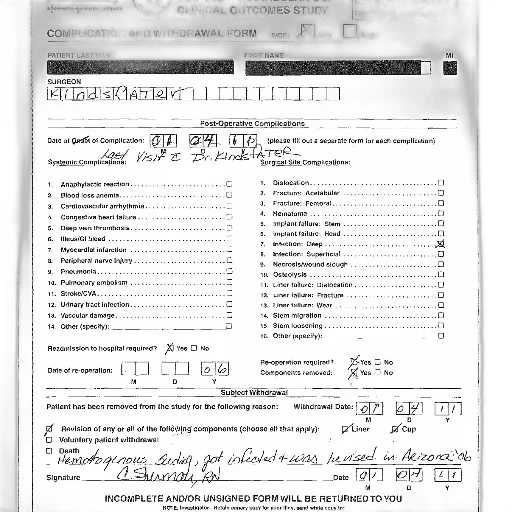 CLINICAL OUTCOMES STUDY
COMPLICATION AND WITHDRAWAL FORM
PATIENT LAST NAME FIRST NAME MI
SURGEON
Kindskater
Post-Operative Complications
Date of Onset of Complication: (please fill out a separate form for each complication)
Last Visit c Dr. KindsTATER
Systemic Complications: Surgical Site Complications:
1. Anaphylactic reaction
2. Blood loss anemia
3. Cardiovascular arrhythmia
4. Congestive heart failure
5. Deep vein thrombosis
6. Ileus/GI bleed
7. Myocardial infarction
8. Peripheral nerve injury
9. Pneumonia
10. Pulmonary embolism
11. Stroke/CVA
12. Urinary tract infection
13. Vascular damage
14. Other (specify):
1. Dislocation
2. Fracture: Acetabular
3. Fracture: Femoral
4. Hematoma
5. Implant failure: Stem
6. Implant failure: Head
7. Infection: Deep
8. Infection: Superficial
9. Necrosis/wound slough
10. Osteolysis
11. Liner failure: Dislocation
12. Liner failure: Fracture
13. Liner failure: Wear
14. Stem migration
15 Stem loosening
16. Other (specify):
Readmission to hospital required? Yes No
Re-operation required? Yes No
Date of re-operation: 06
Components removed: Yes No
M D Y
Subject Withdrawal
Patient has been removed from the study for the following reason: Withdrawal Date: 04 11
M D Y
Revision of any or all of the following components (choose all that apply): Liner Cup
Voluntary patient withdrawal
Death
got infected + was revised in Arizona '06
Signature RN Date 04 11
M D Y
INCOMPLETE AND/OR UNSIGNED FORM WILL BE RETURNED TO YOU